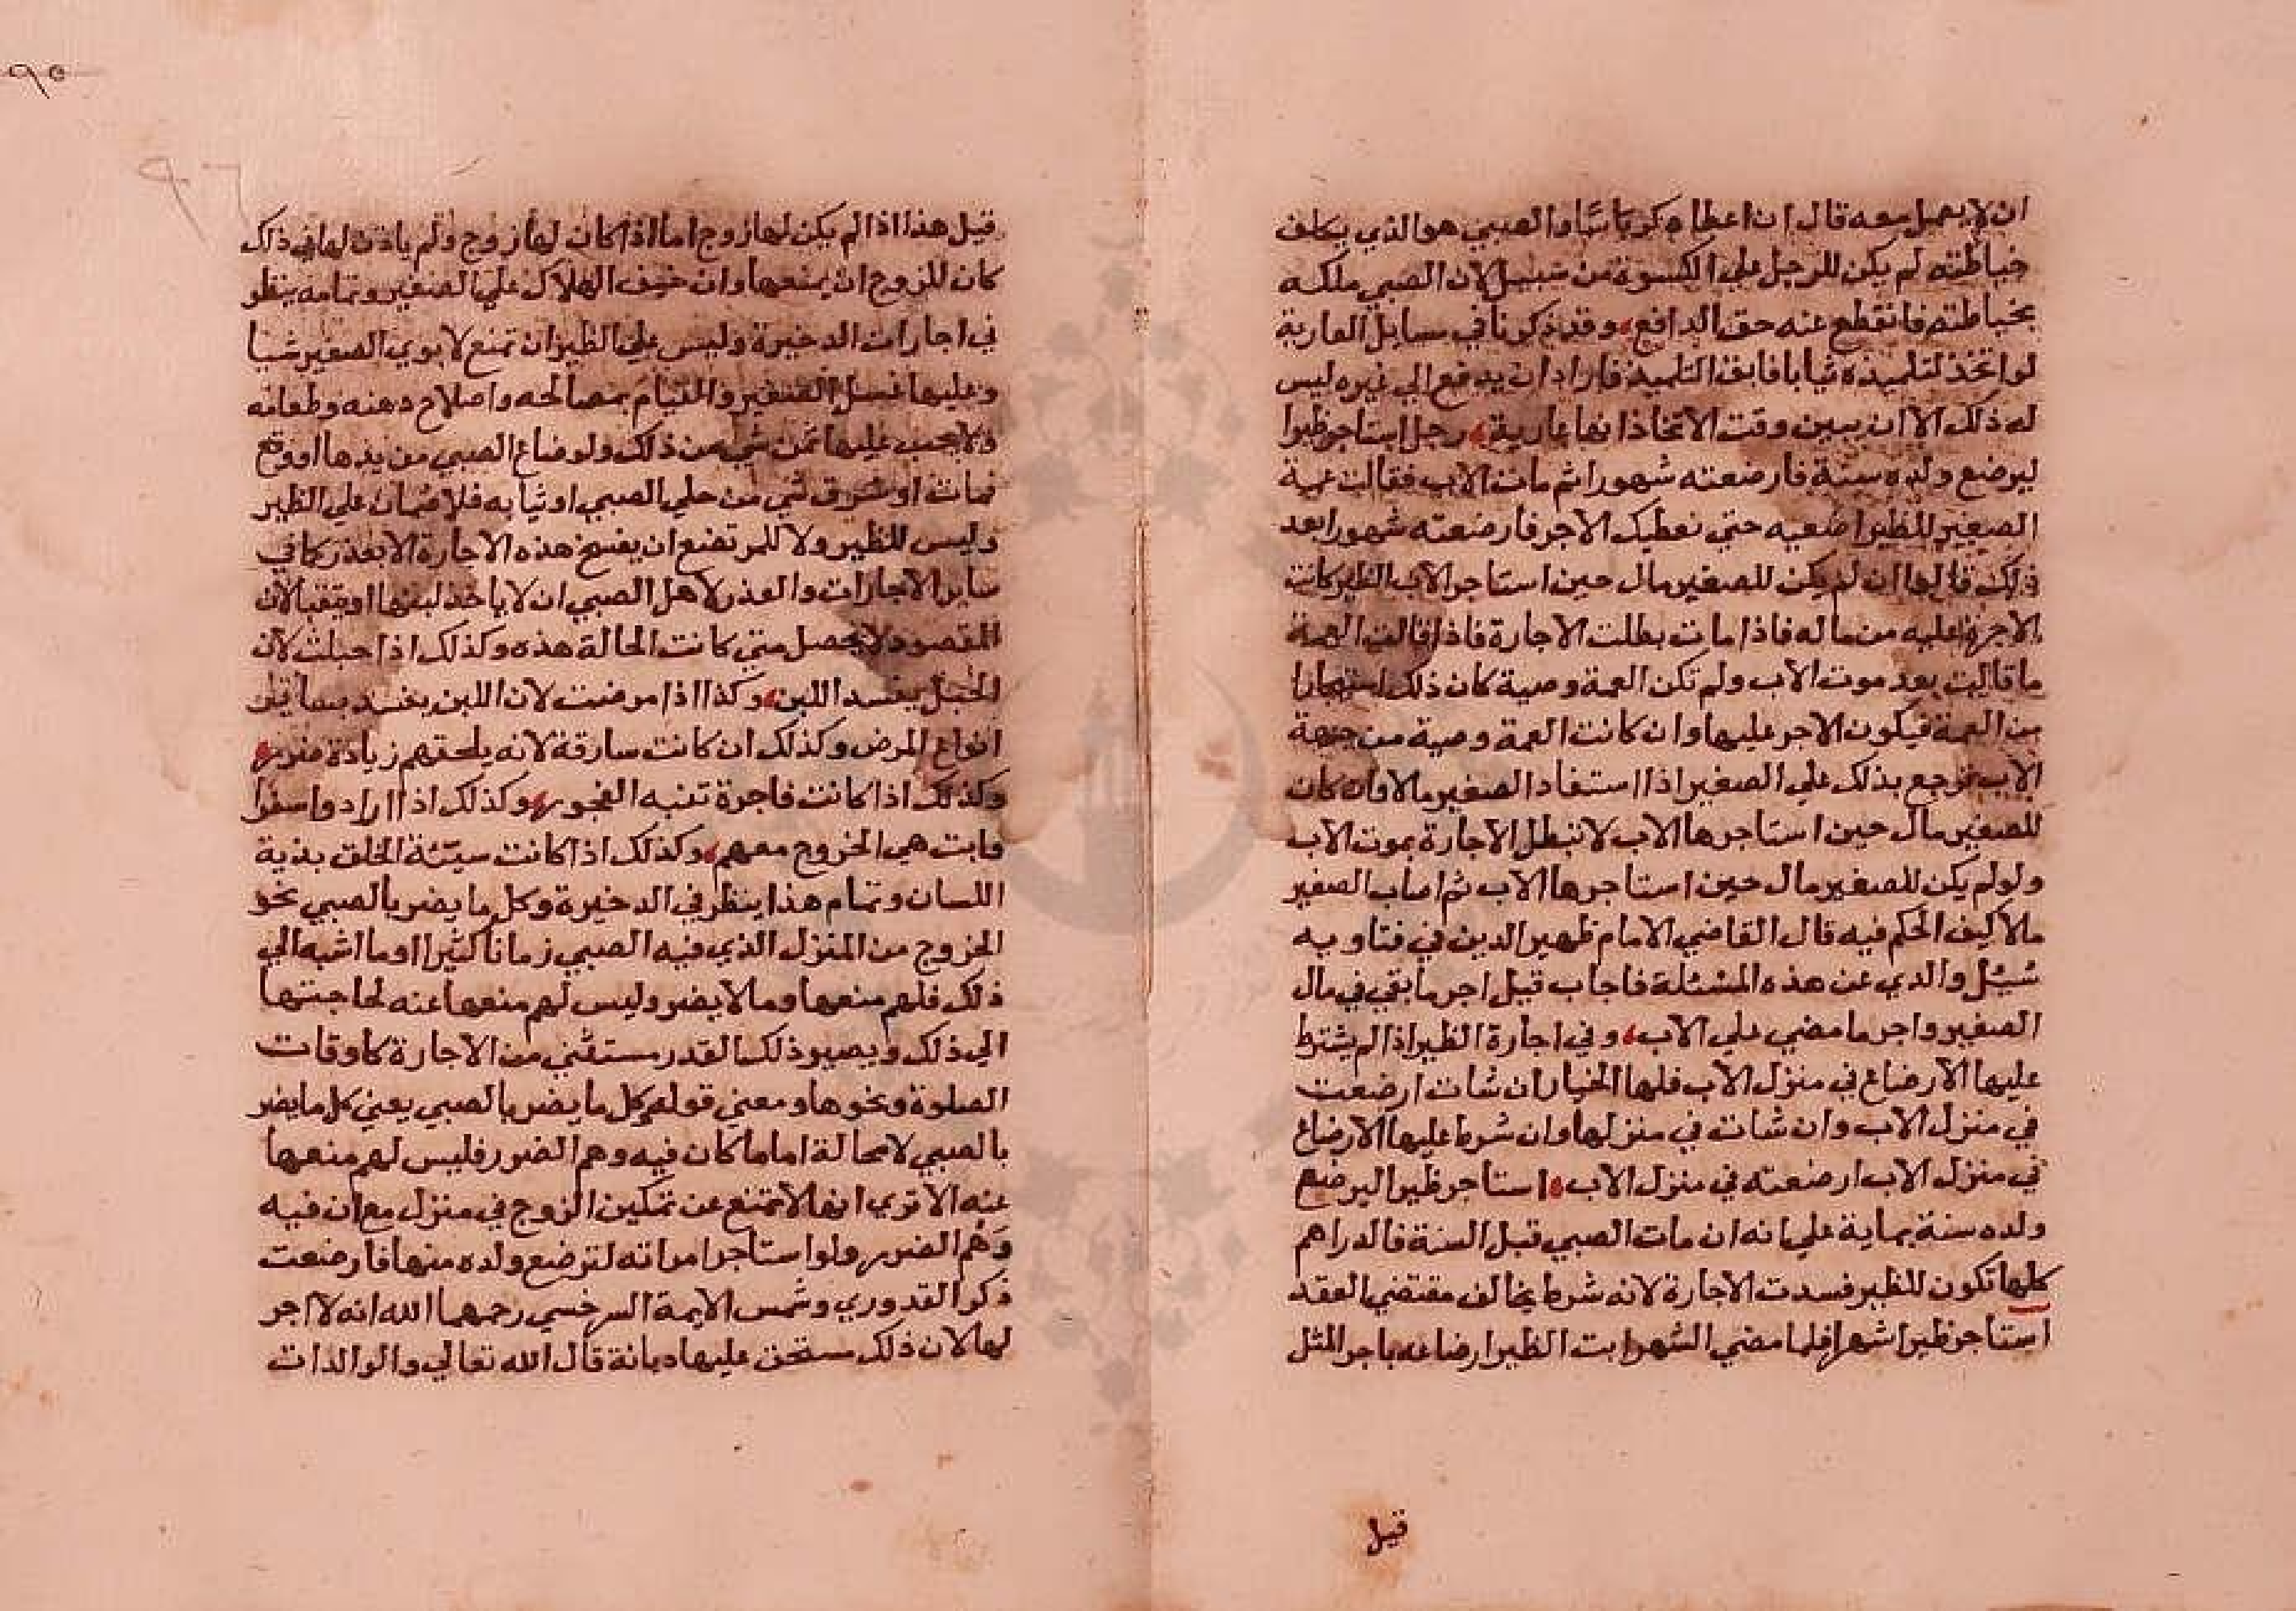 ان لا يعمل معه قال ان اعطاه كرباسا والصبي هو الذي يكلف
خياطته لم يكن للرجل علي الكسوة من سبيل لان الصبي ملكه
بخياطته فانقطع عنه حق الدافع وقد ذكرنا في مسايل العارية
لو اتخذ لتلميذه ثيابا فابق التلميذ فاراد ان يدفع الي غيره ليس
له ذلك الا ان يبين وقت الاتخاذ انها عارية رجل استاجر ظيرا
ليرضع ولده سنة فارضعته شهورا ثم مات الاب فقالت عمة
الصغير للظير ارضعيه حتي نعطيك الاجر فارضعته شهورا بعد
ذلك قالوا ان لم يكن للصغير مال حين استاجر الاب الظير كانت
الاجرة عليه من ماله فاذا مات بطلت الاجارة فاذا قالت العمة
ما قالت بعد موت الاب ولم تكن العمة وصية كان ذلك استيجارا
من العمة فيكون الاجر عليها وان كانت العمة وصية من جهة
الاب ترجع بذلك علي الصغير اذا استفاد الصغير مالا وان كان
للصغير مال حين استاجرها الاب لا تبطل الاجارة بموت الاب
ولو لم يكن للصغير مال حين استاجرها الاب ثم اصاب الصغير
مالا كيف الحكم فيه قال القاضي الامام ظهير الدين في فتاويه
سُيل والدي عن هذه المسئلة فاجاب قيل اجر ما بقي في مال
الصغير واجر ما مضي علي الاب وفي اجارة الظير اذا لم يشترط
عليها الارضاع في منزل الاب فلها الخيار ان شات ارضعت
في منزل الاب وان شات في منزلها وان شرط عليها الارضاع
في منزل الاب ارضعته في منزل الاب استاجر ظيرا ليرضع
ولده سنة بماية علي انه ان مات الصبي قبل السنة فالدراهم
كلها تكون للظير فسدت الاجارة لانه شرط يخالف مقتضي العقد
استاجر ظيرا شهرا فلما مضي الشهر ابت الظير ارضاعه باجر المثل
قيل
٩٥
٩٦
قيل هذا اذا لم يكن لها زوج اما اذا كان لها زوج ولم ياذن لها في ذلك
كان للزوج ان يمنعها وان خيف الهلاك علي الصغير وتمامه ينظر
في اجارات الدخيرة وليس علي الظير ان تمنع لابوي الصغير شيا
وعليها غسل الصغير والقيام بمصالحه واصلاح دهنه وطعامه
ولا يجب عليها ثمن شي من ذلك ولو ضاع الصبي من يدها او وقع
فمات او سرق شي من حلي الصبي او ثيابه فلا ضمان علي الظير
وليس للظير ولا للمرتضع ان يفسخ هذه الاجارة الا بعذر كما في
ساير الاجارات والعذر لاهل الصبي ان لا ياخذ لبنها او يتقيا لان
المقصود لا يحصل متي كانت الحالة هذه وكذلك اذا حبلت لان
الحبل يفسد اللبن وكذا اذا مرضت لان اللبن يفسد بساير
انواع المرض وكذلك ان كانت سارقة لانه يلحقهم زيادة ضرر
وكذلك اذا كانت فاجرة تبينه الفجور وكذلك اذا ارادوا سفرا
وابت هي الخروج معهم وكذلك اذا كانت سيئة الخلق بذية
اللسان وتمام هذا ينظر في الدخيرة وكل ما يضر بالصبي نحو
الخروج من المنزل الذي فيه الصبي زمانا كثيرا او ما اشبه الي
ذلك فلهم منعها وما لا يضر وليس لهم منعها عنه لحاجتها
الي ذلك ويصير ذلك القدر مستثني من الاجارة كاوقات
الصلوة ونحوها ومعني قوله كل ما يضر بالصبي يعني كل ما يضر
بالصبي لا محالة اما ما كان فيه وهم الضرر فليس لهم منعها
عنه الا تري انها لا تمنع عن تمكين الزوج في منزل مع ان فيه
وَهْم الضرر ولو استاجر امراته لترضع ولده منها فارضعت
ذكر القدوري وشمس الايمة السرخسي رحمهما الله انه لا اجر
لها لان ذلك مستحق عليها ديانة قال الله تعالي والوالدات